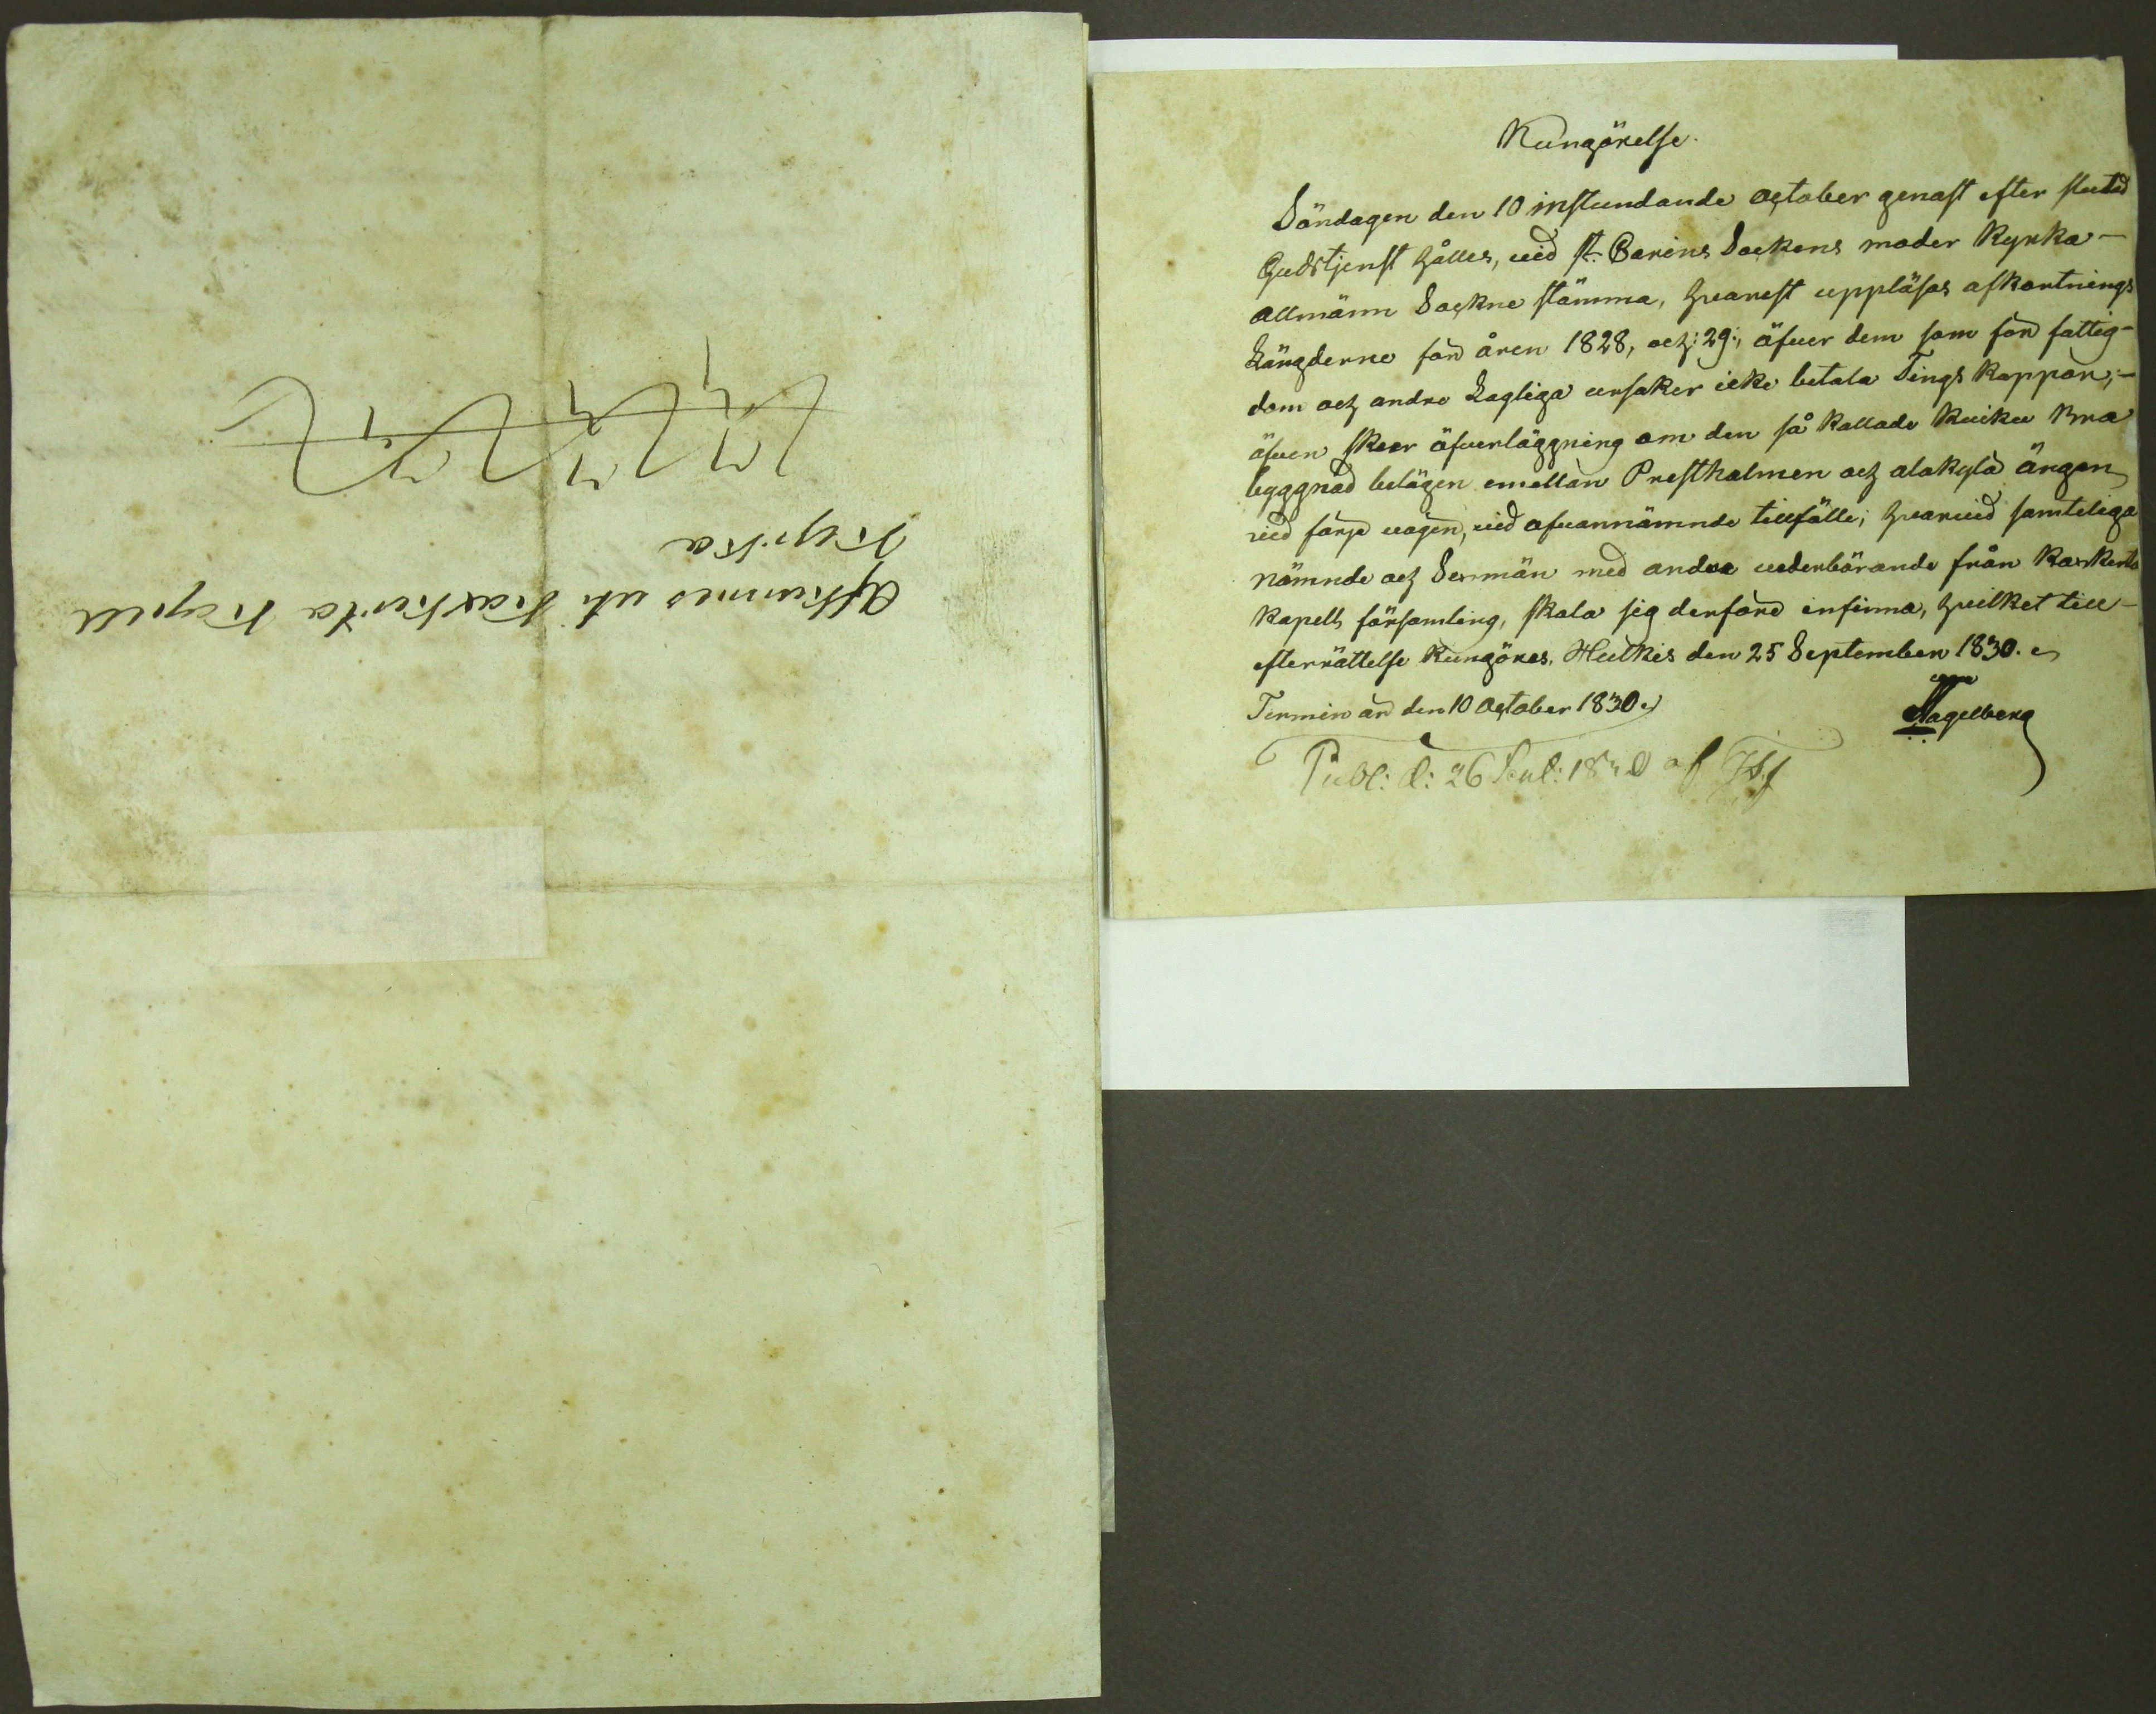 Afkunnes uti Karkerta Kapell
kyrka
Kungörelse.
Söndagen den 10 instundande October genast efter slutad
Gudstjenst hålles, vid St. Bärins Sockens moder Kyrka-
allmänn Sockne stämma, hvarest uppläsas afkortnings
Längderne för åren 1828, och: 29:, äfver dem som för fattig-
dom och andre Lagliga ursaker icke betala Tings kappar,-
äfven skeer äfverläggning om den så kallade Kuiku Bro
byggnad belägen emellan Prestholmen och alakylä ängen
vid färje vägen, vid ofvannämnde tillfälle; hvarvid samteliga
nämnde och Sexmän med andra vederbörande från Karkerta
kapells församling, skola sig derföre infinna, hvilket till-
efterrättelse kungöres. Hutkis den 25 September 1830.
Nagelberg
Termin är den 10 October 1830.
Publ: d: 26 Sept: 1830 af